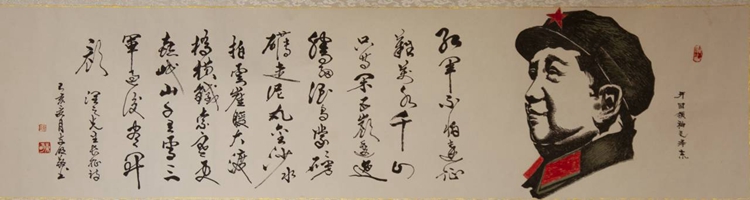 开国领袖毛泽东
红军不怕远征
难万水千山
只等闲五岭逶迤
腾细浪乌蒙磅
礴走泥丸金沙水
拍雲崖暖大渡
橋横鐵索寒更
喜岷山千里雪三
軍过後尽开
颜
润之先生长征诗
己亥